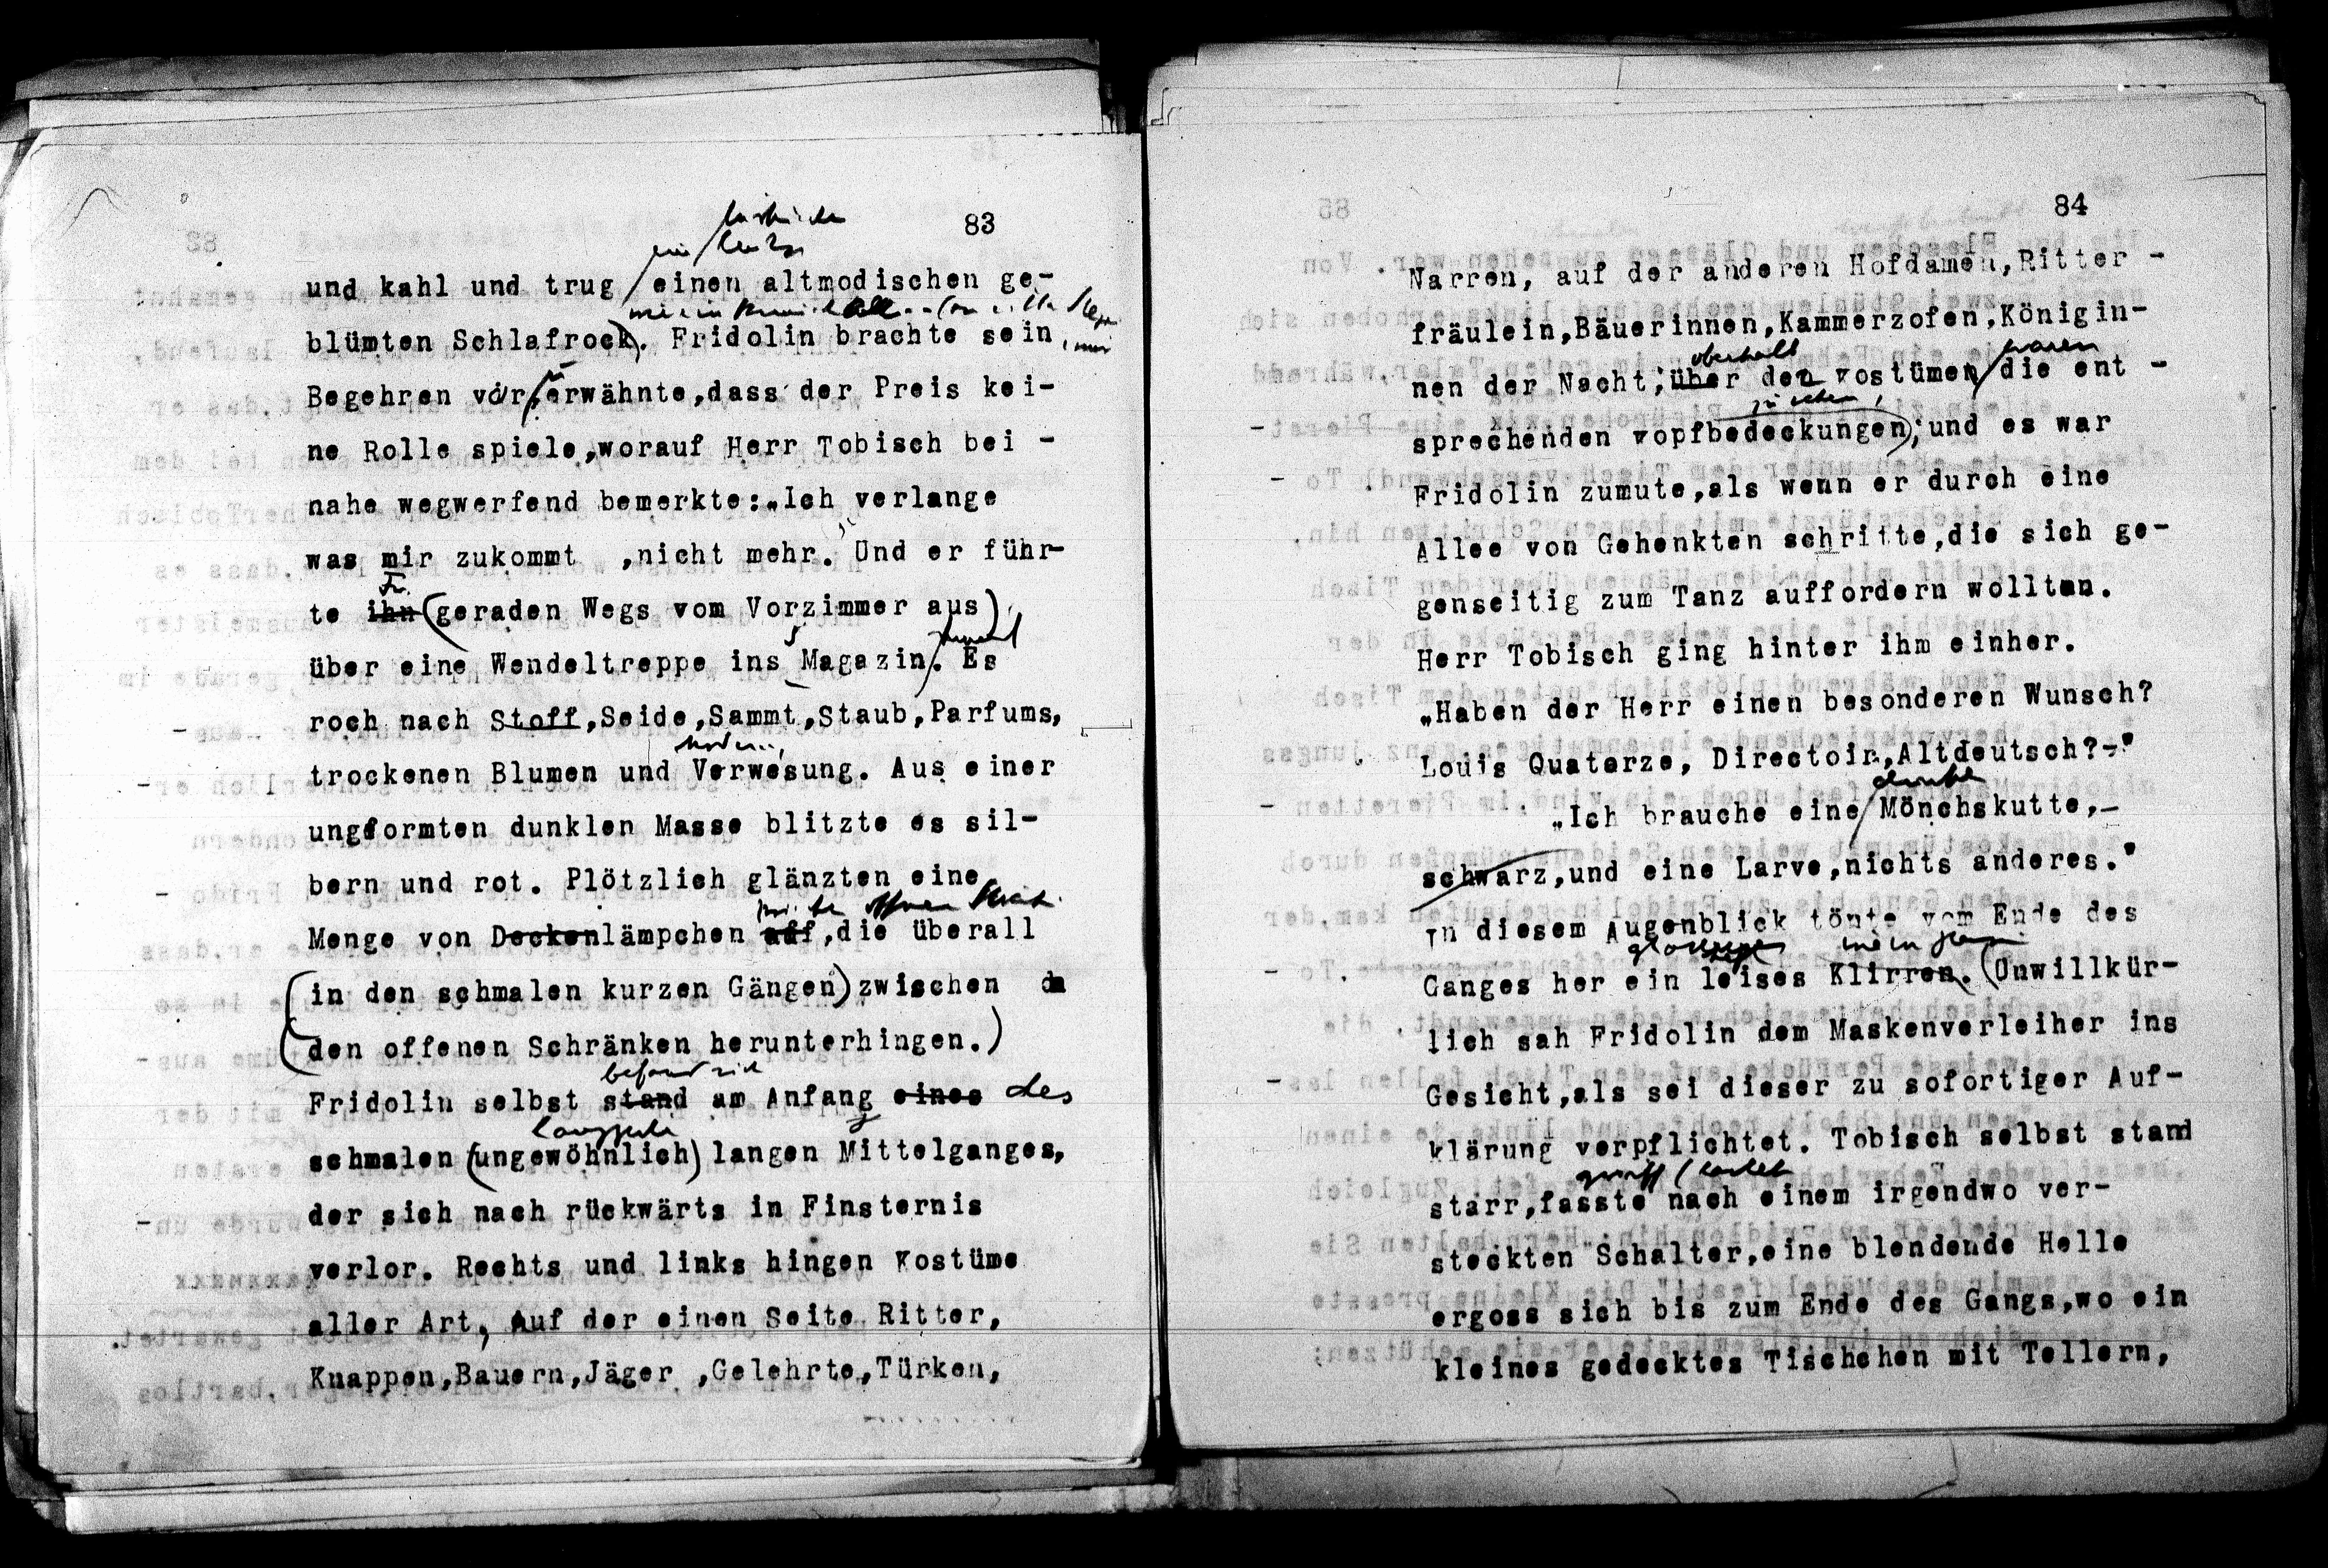 83
und kahl und trug einen altmodischen ge-
blümten Schlafrock. Fridolin brachte sein
Begehren vor, erwähnte,dass der Preis kei-
ne Rolle spiele,worauf Herr Tobisch bei -
nahe wegwerfend bemerkte:„Ich verlange
was mir zukommt ,nicht mehr. Und er führ-
Fr.
te ihn (geraden Wegs vom Vorzimmer aus)
über eine Wendeltreppe ins Magazin. Es
roch nach Stoff,Seide,Sammt,Staub,Parfums,
trockenen Blumen und Verwesung. Aus einer
ungeformten dunklen Masse blitzte es sil-
bern und rot. Plötzlich glänzten eine
Menge von Deckenlämpchen auf,die überall
(in den schmalen kurzen Gängen) zwischen da
(den offenen Schränken herunterhingen.)
befand sich
Fridolin selbst stand am Anfang eines des
schmalen (ungewöhnlich) langen Mittelganges,
der sich nach rückwärts in Finsternis
verlor. Rechts und links hingen Kostüme
aller Art, Auf der einen Seite Ritter,
Knappen,Bauern,Jäger ,Gelehrte,Türken,
84
Narren, auf der anderen Hofdamen,Ritter -
fräulein,Bäuerinnen,Kammerzofen,Königin-
oberhalb waren
nen der Nacht;über den Kostümen die ent -
zu sehen,
sprechenden Kopfbedeckungen); und es war
Fridolin zumute,als wenn er durch eine
Allee von Gehenkten schritte,die sich ge-
genseitig zum Tanz auffordern wollten.
Herr Tobisch ging hinter ihm einher.
„Haben der Herr einen besonderen Wunsch?
Louis Quaterze, Directoir,Altdeutsch?-"
dunkle
„Ich brauche eine Mönchskutte,-
schwarz,und eine Larve,nichts anderes."
In diesem Augenblick tönte vom Ende des
Ganges her ein leises Klirren. (Unwillkür-
lich sah Fridolin dem Maskenverleiher ins
Gesicht,als sei dieser zu sofortiger Auf-
klärung verpflichtet. Tobisch selbst stand
griff / tastete
starr,fasste nach einem irgendwo ver-
steckten Schalter,eine blendende Helle
ergoss sich bis zum Ende des Gangs,wo ein
kleines gedecktes Tischchen mit Tellern,